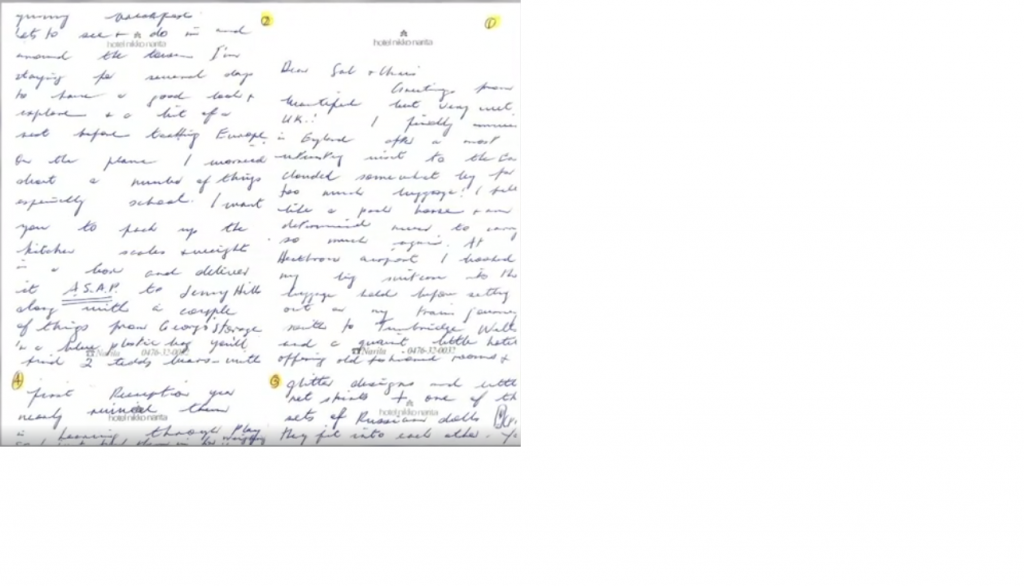 ①
hotel nikko narita
Dear Sal & Chris
Greetings from
beautiful but very wet
UK.! I finally
in England after a most
visit to the
clouded somewhat by far
too much luggage! I
like a pack horse & am
determined never to carry
so much again. At
Heathrow airport I booked
my big suitcase into the
luggage hold before setting
out on my train journey
to Tunbridge Wells
and a quaint little hotel
offering old fashioned rooms &
Narita 0476-32-0032
②
yummy breakfast
lots to see & do in and
hotel nikko narita
around the town I'm
staying for several days
to have a good look &
explore & a bit of a
rest before tackling Europe.
On the plane I worried
about a number of things
especially school. I want
you to pack up the
kitchen scales & weights
in a box and deliver
it A.S.A.P. to Jenny Hill
along with a couple
of things from storage
in a blue plastic bag you'll
find 2 teddy bears - with
Narita 0476-32-0032
③
glitter designs and
net skirts & one of the
hotel nikko narita
sets of Russian dolls
they fit into each other.
④
first Reception year
nearly ruined them
hotel nikko narita
through play